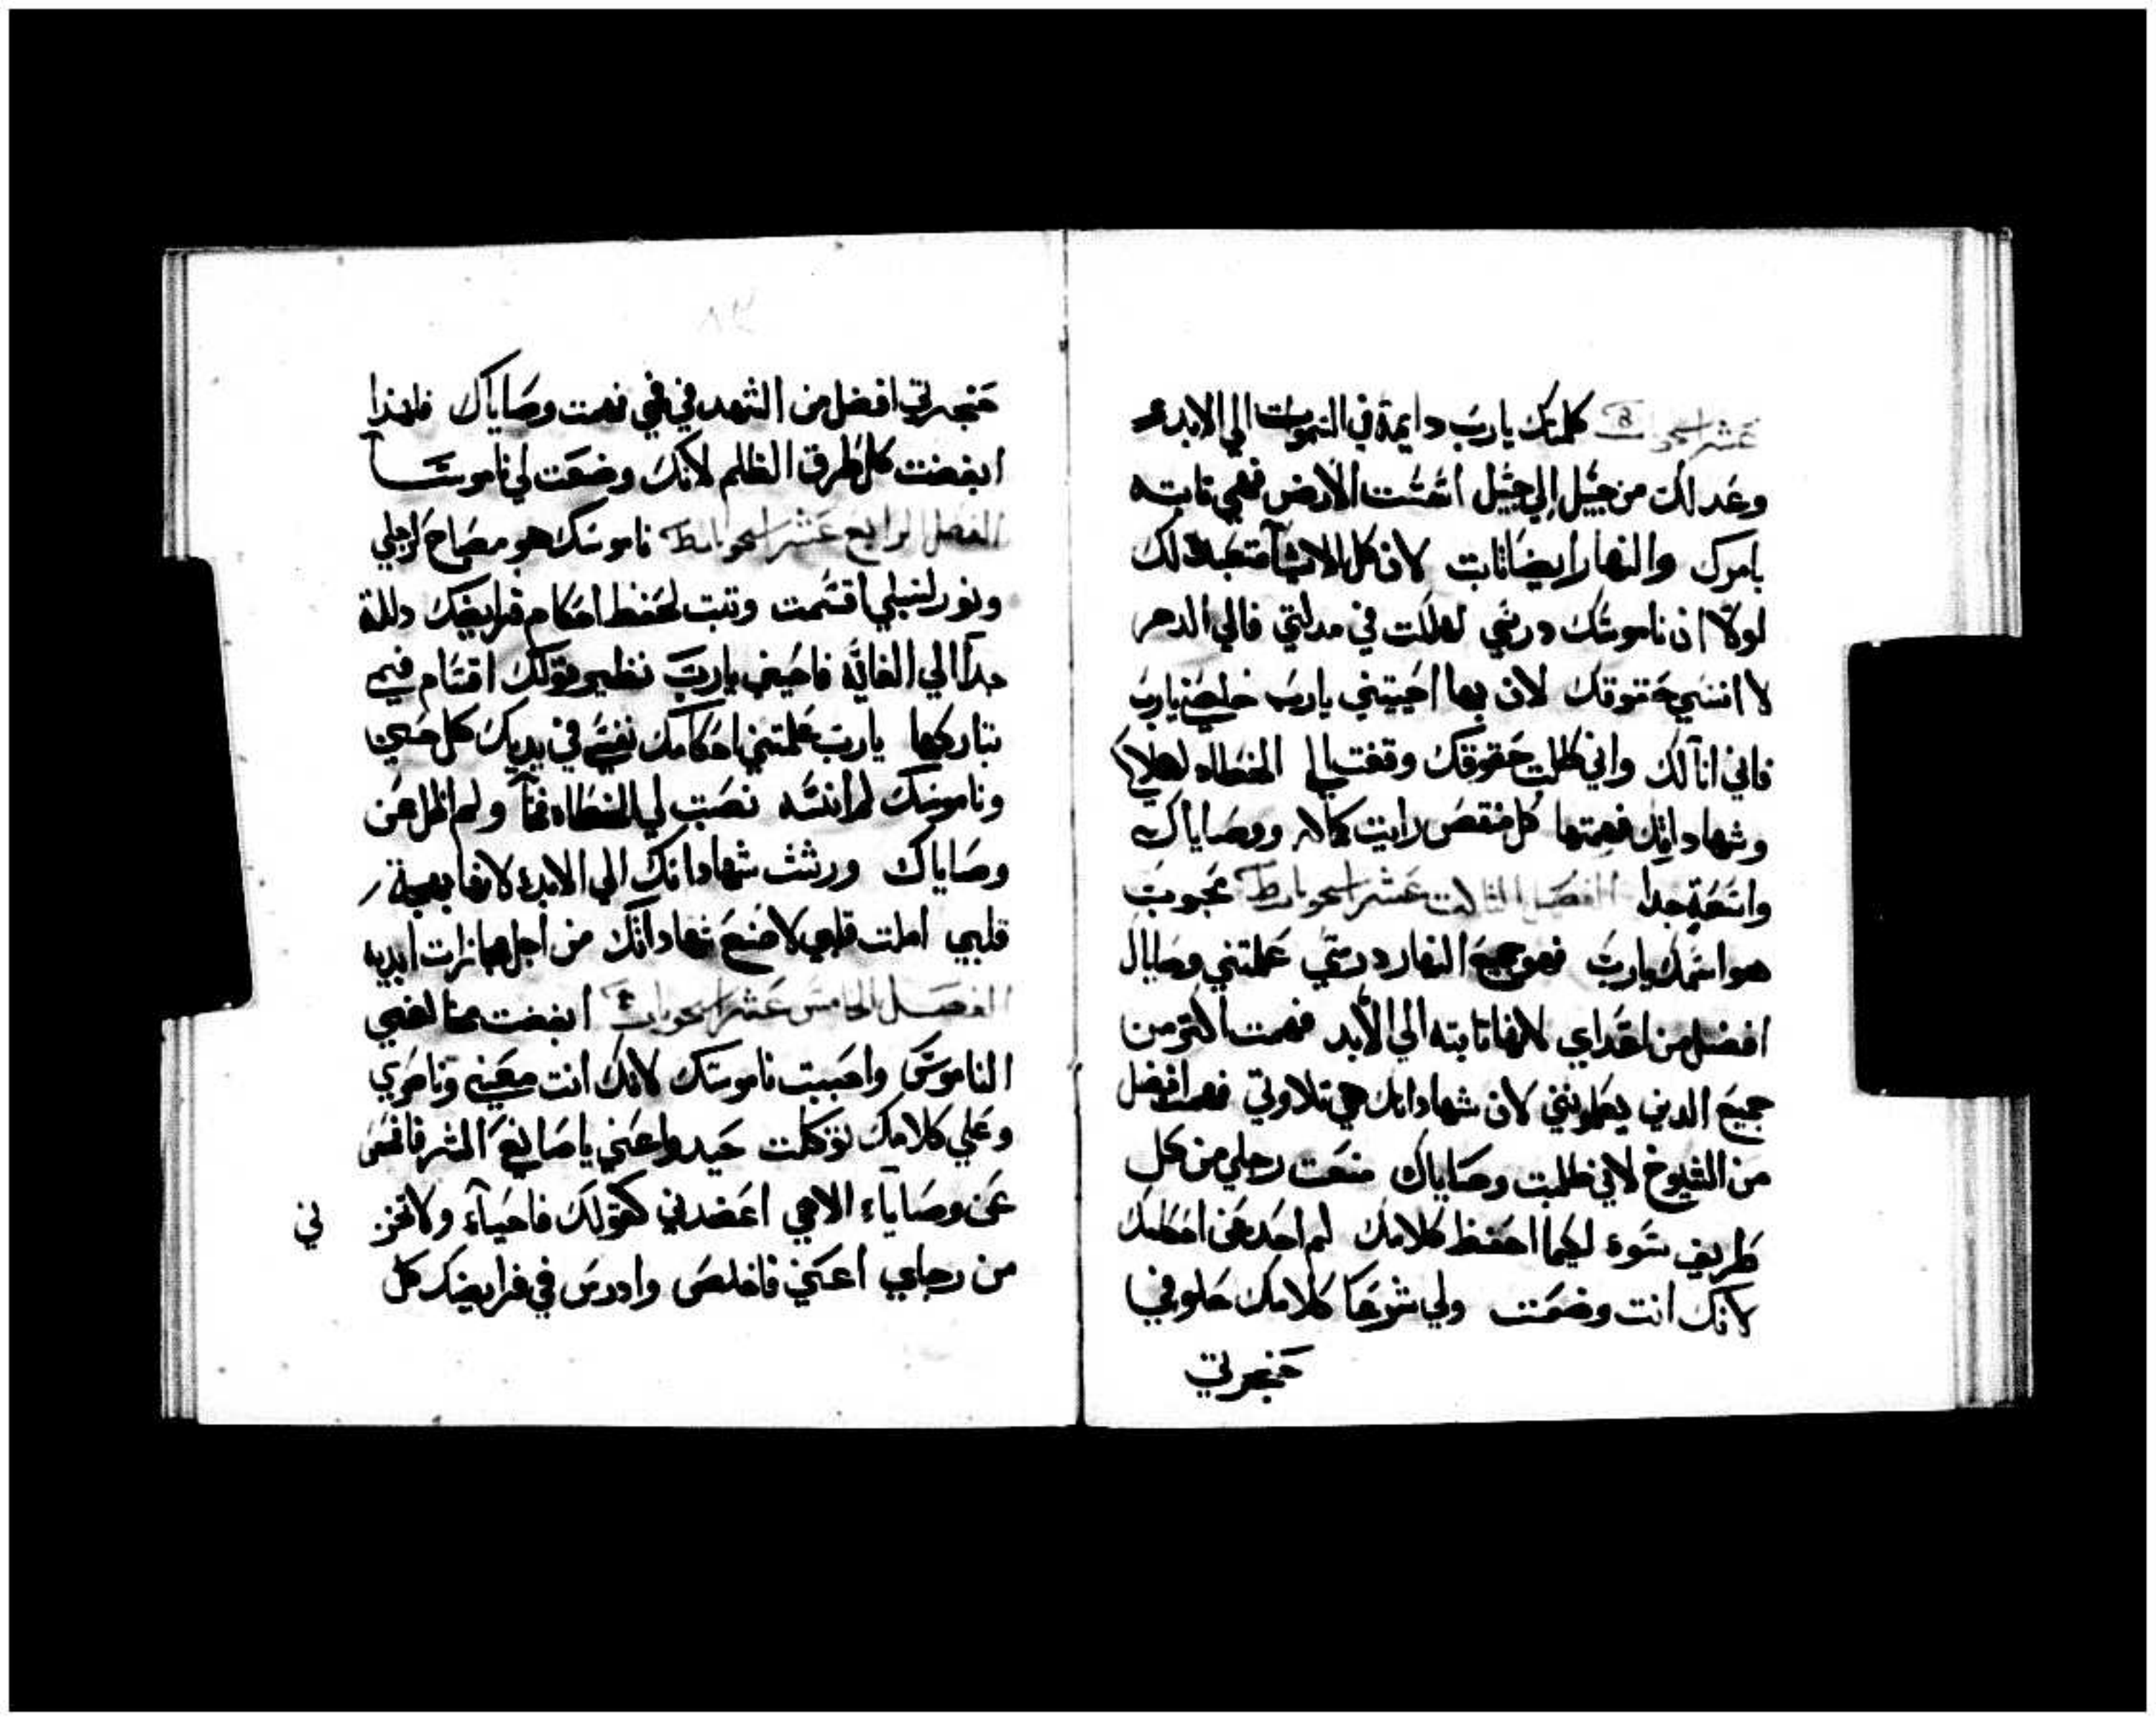 عشر استيخونات كلمتك يارب دايمة في السموات الي الابد
وعدلك من جيل الي جيل اتقنت الارض فهي تابته
بامرك والنهار ايضا تابت لان كل الاشيآ متعبده لك
لولا ان ناموسك درسي لهلكت في مدلتي فالي الدهر
لا انسي حقوقك لان بها احييتني يارب خلصني يارب
فاني انا لك واني طلبت حقوقك وقفت لي الخطاه لهلاكي
وشهاداتك فهمتها كل منقص رايت كماله ووصاياك
واسعة جدا الفصل التالت عشر محبوب
هو اسمك يارب فهو جميع النهار درسي علمتني وصاياك
افضل من اعداي لانها تابته الي الابد فهمت اكتر من
جميع الدين يعلمونني لان شهاداتك هي تلاوتي فهمت افضل
من الشيوخ لاني طلبت وصاياك منعت رجلي من كل
طريق سوء لكيما احفظ كلامك لم احد عن احكامك
لانك انت وضعت ولي شرعا كلامك حلو في
حنجرتي
٨٣
حنجرتي افضل من الشهد في في فهمت وصاياك فلهذا
ابغضت كل طرق الظلم لانك وضعت لي ناموسا
الفصل الرابع عشر ناموسك هو مصباح لرجلي
ونور لسبلي اقسمت وتبت لحفظ احكام فرايضك دللة
جدآ الي الغاية فاحيني يارب نظير قولك اقسام فمي
تباركها يارب علمتني احكامك نفسي في يديك كل حين
وناموسك لم انسه نصب لي الخطاه فخآ ولم اضل عن
وصاياك ورثت شهاداتك الي الابد لانها بهجة
قلبي املت قلبي لاصنع شهاداتك من اجل مجازات ابديه
الفصل الخامس عشر ابغضت مخالفي
الناموس واحببت ناموسك لانك انت معيني وناصري
وعلي كلامك توكلت حيدوا عني يا صانعي الشر فافحص
عن وصاياء الاهي اعضدني كقولك فاحياء ولا تخز ني
من رجاي اعني فاخلص وادرس في فرايضك كل